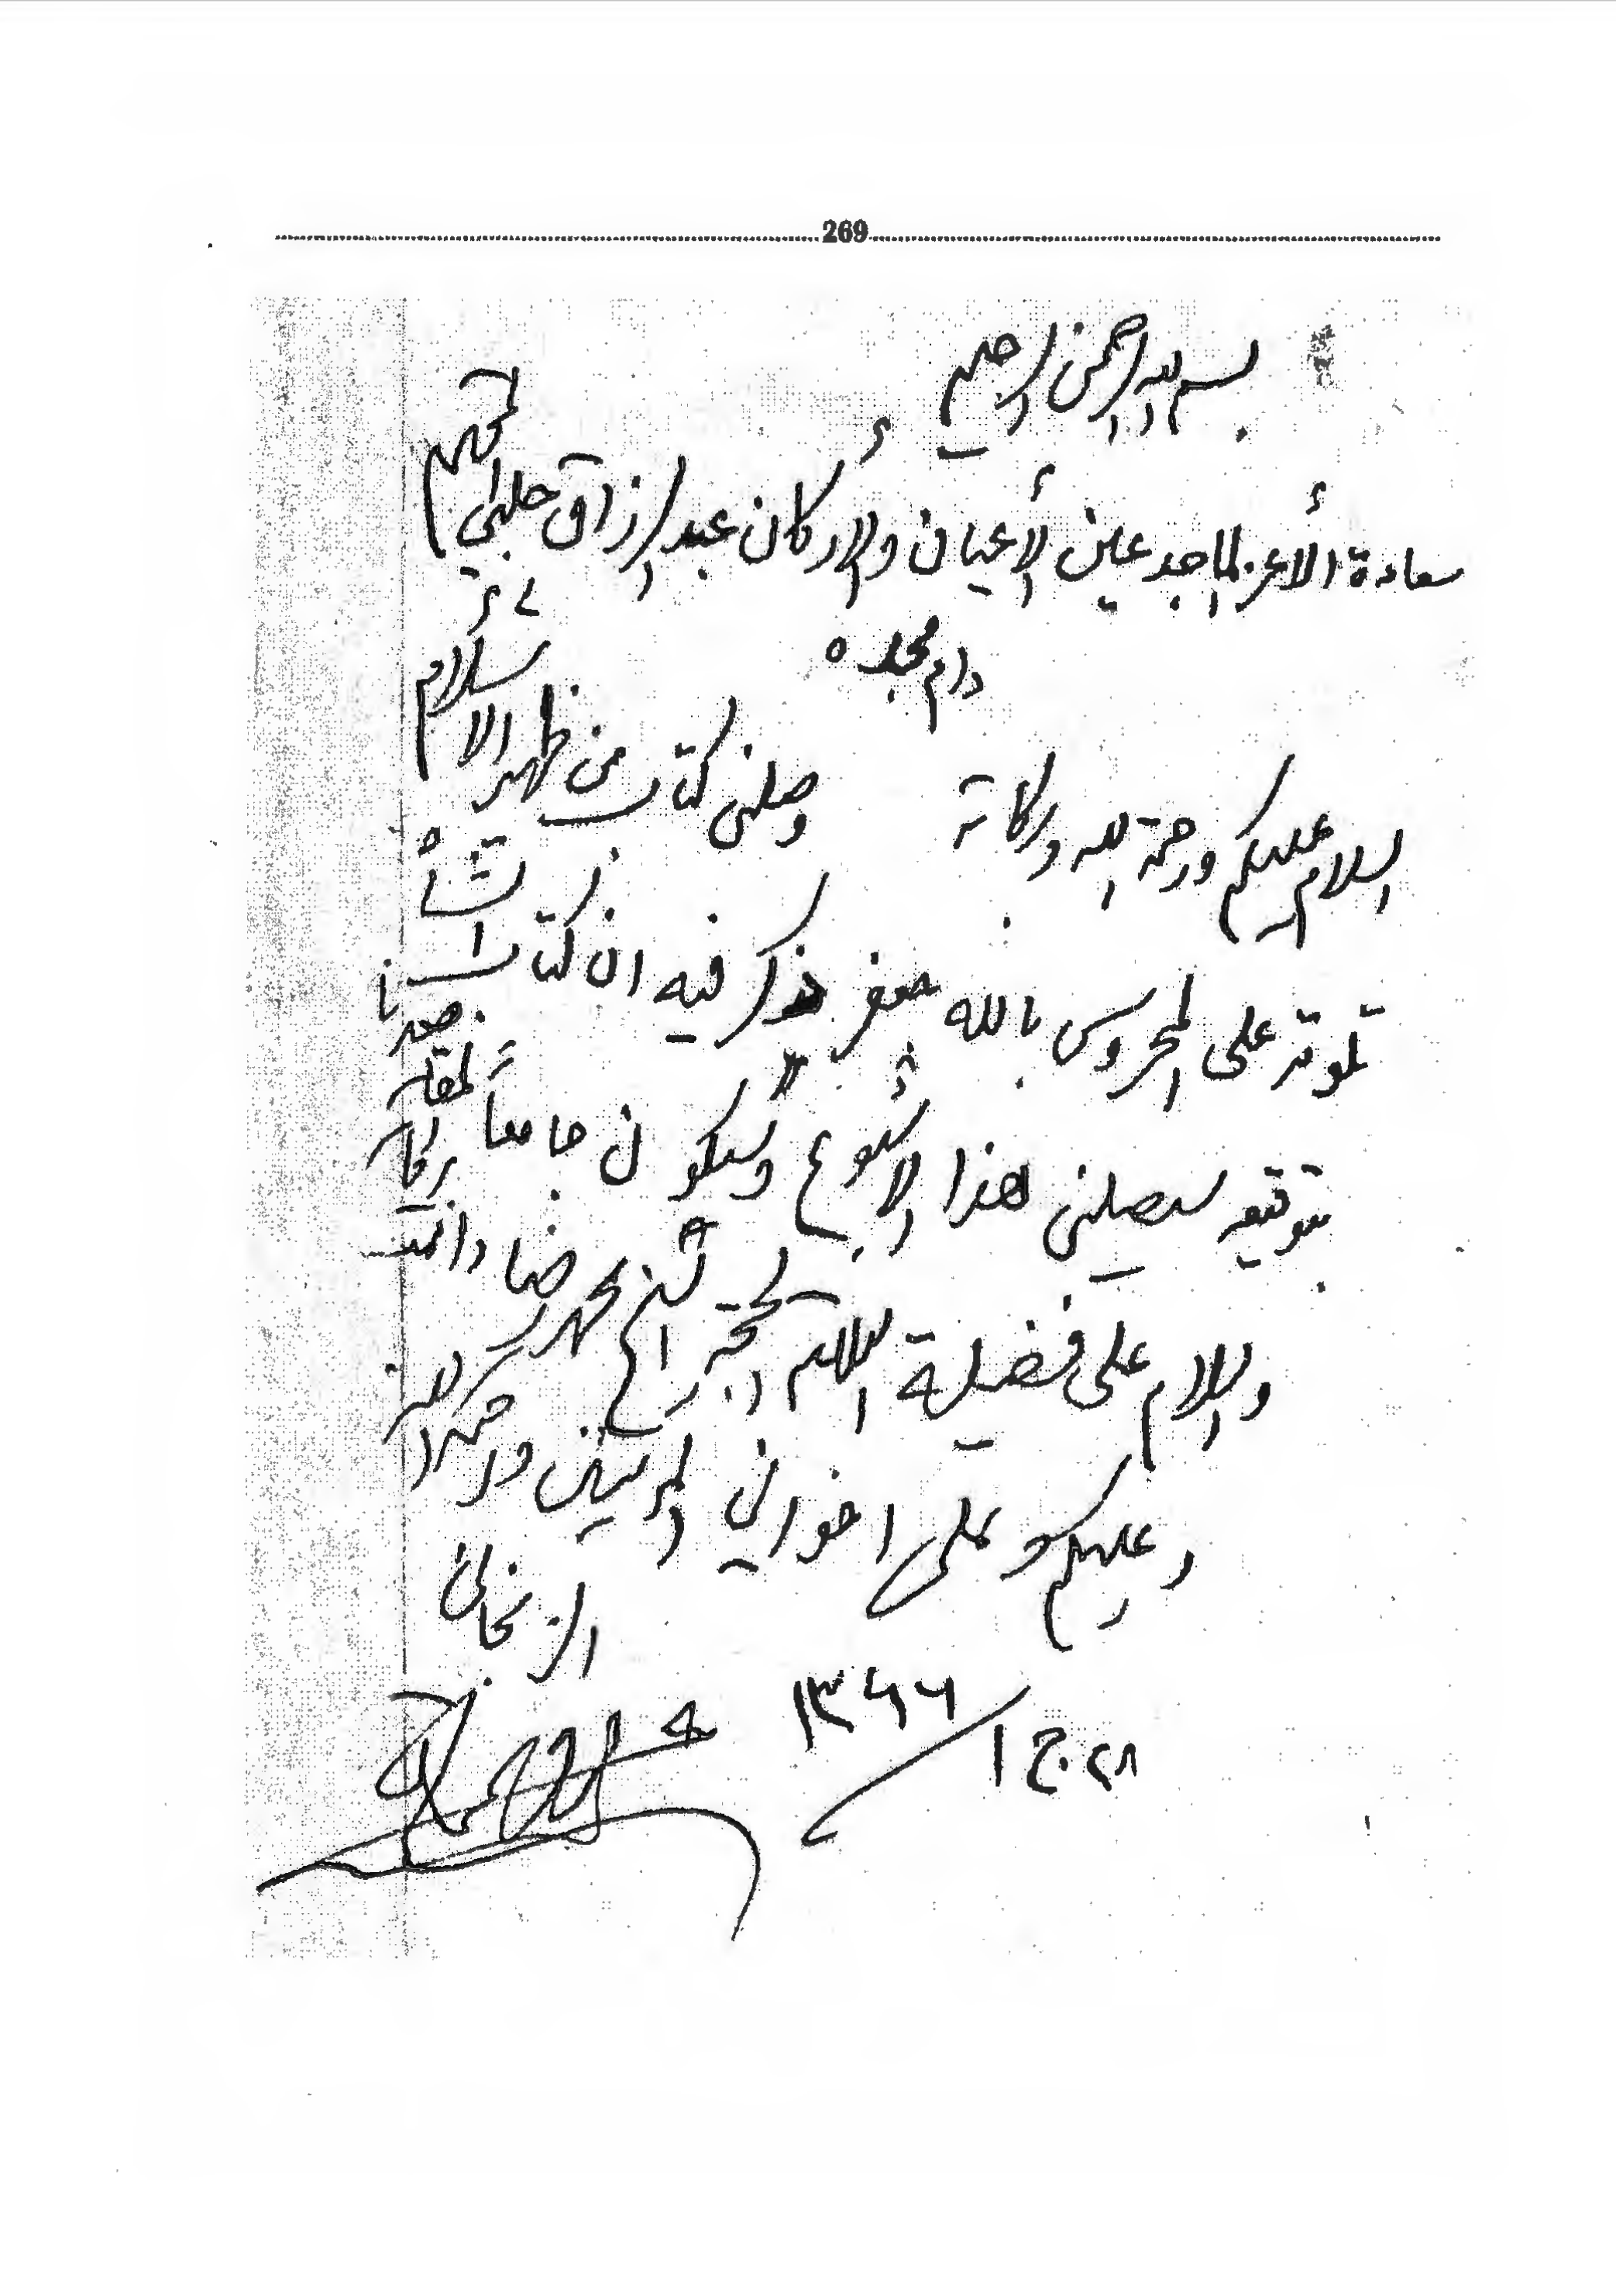 269
بسم الله الرحمن الرحيم
سعادة الأعز الماجد عين الأعيان والأركان عبد الرزاق چلبي المحترم
دام مجده
السلام عليكم ورحمة الله وبركاته وصلني كتاب من ظهير الاسلام
تلوته على المحروس بالله جعفر ذكر فيه ان كتاب
بتوقيعه سيصلني هذا الاسبوع وسيكون جامعاً
والسلام على فضيلة الحجة الشيخ محمد رضا دامت بركاته
وعليكم وعلى اخواني المؤمنين ورحمة الله
الزنجاني
٢٨ ج ١ ١٣٦٦